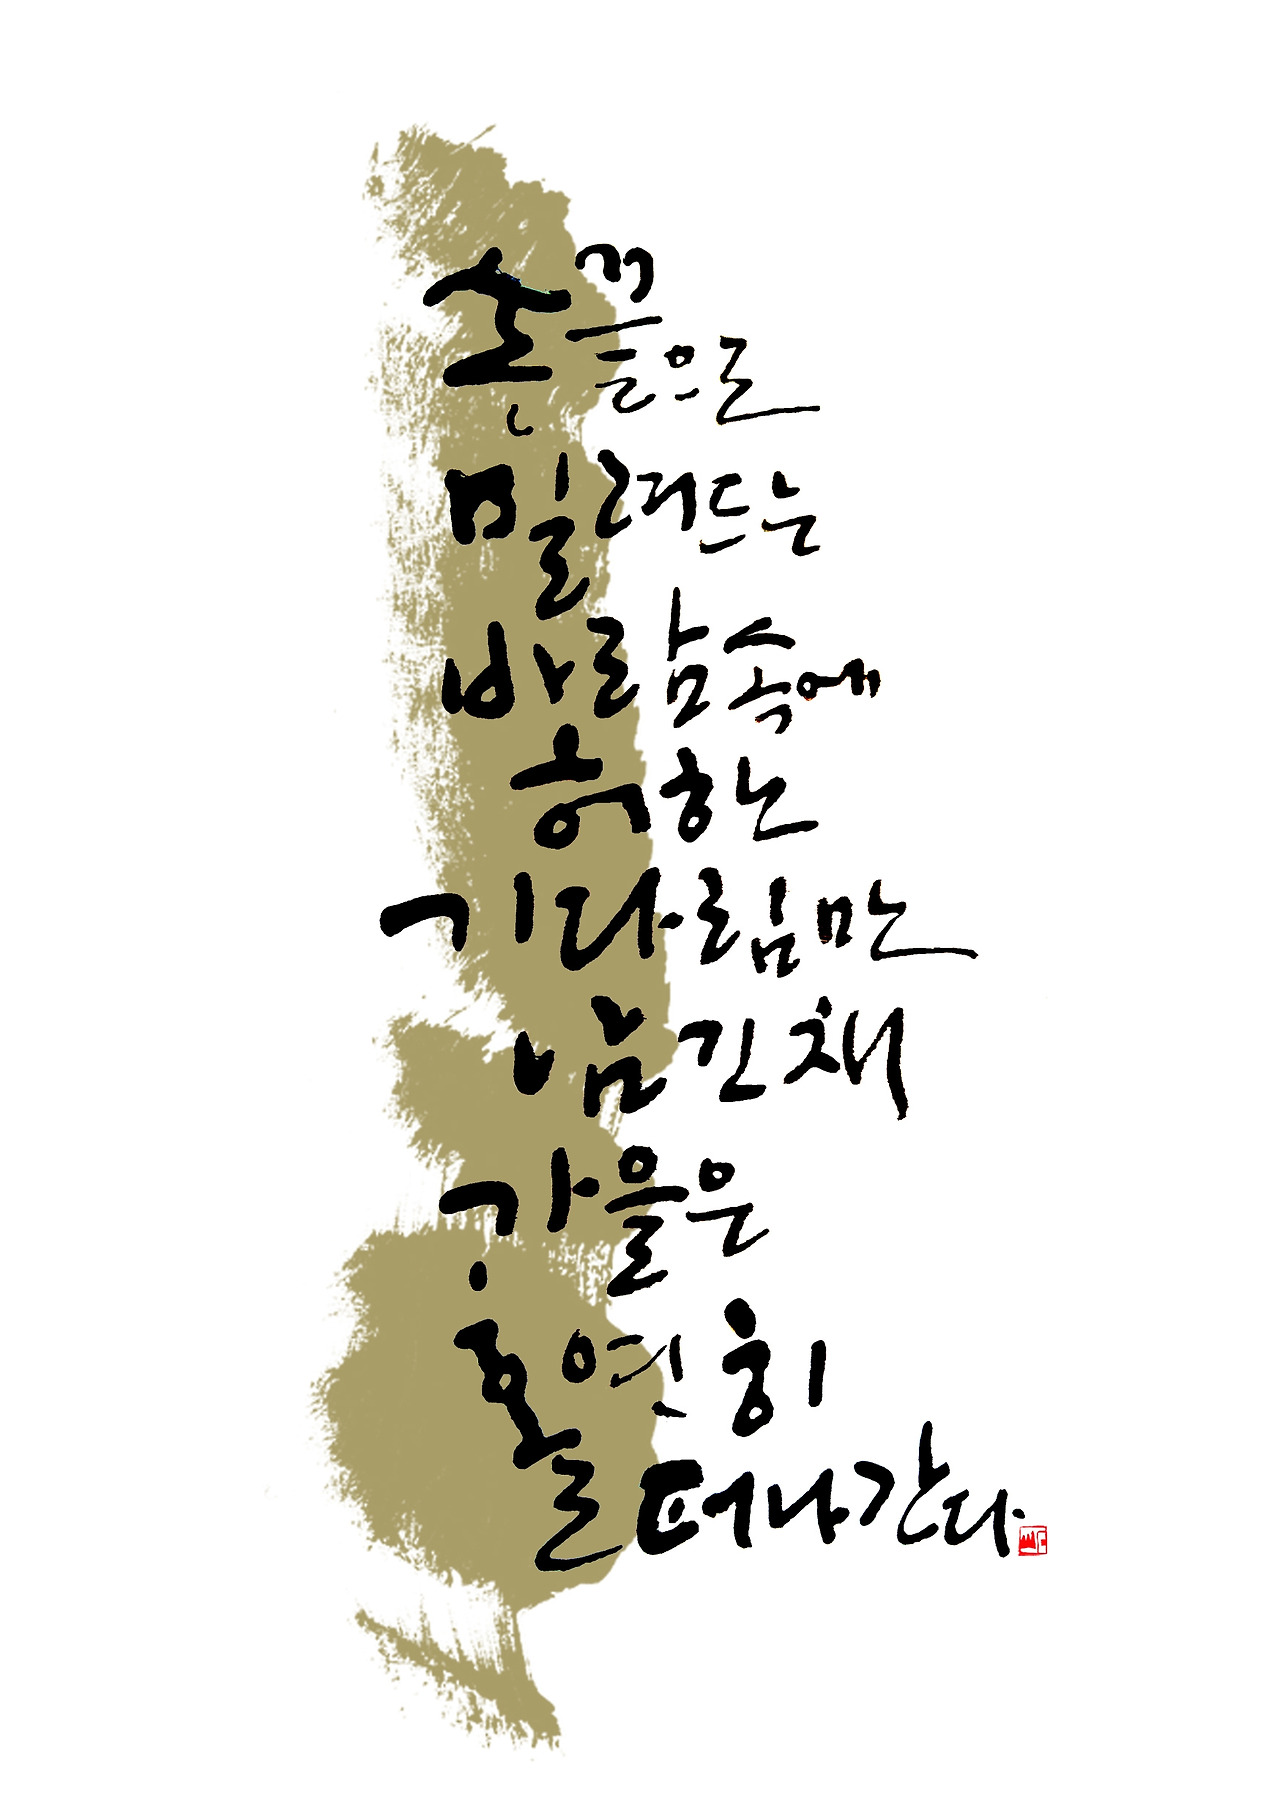 손끝으로
밀려드는
바람속에
허한
기다림만
남긴채
가을은
홀연히
떠나간다